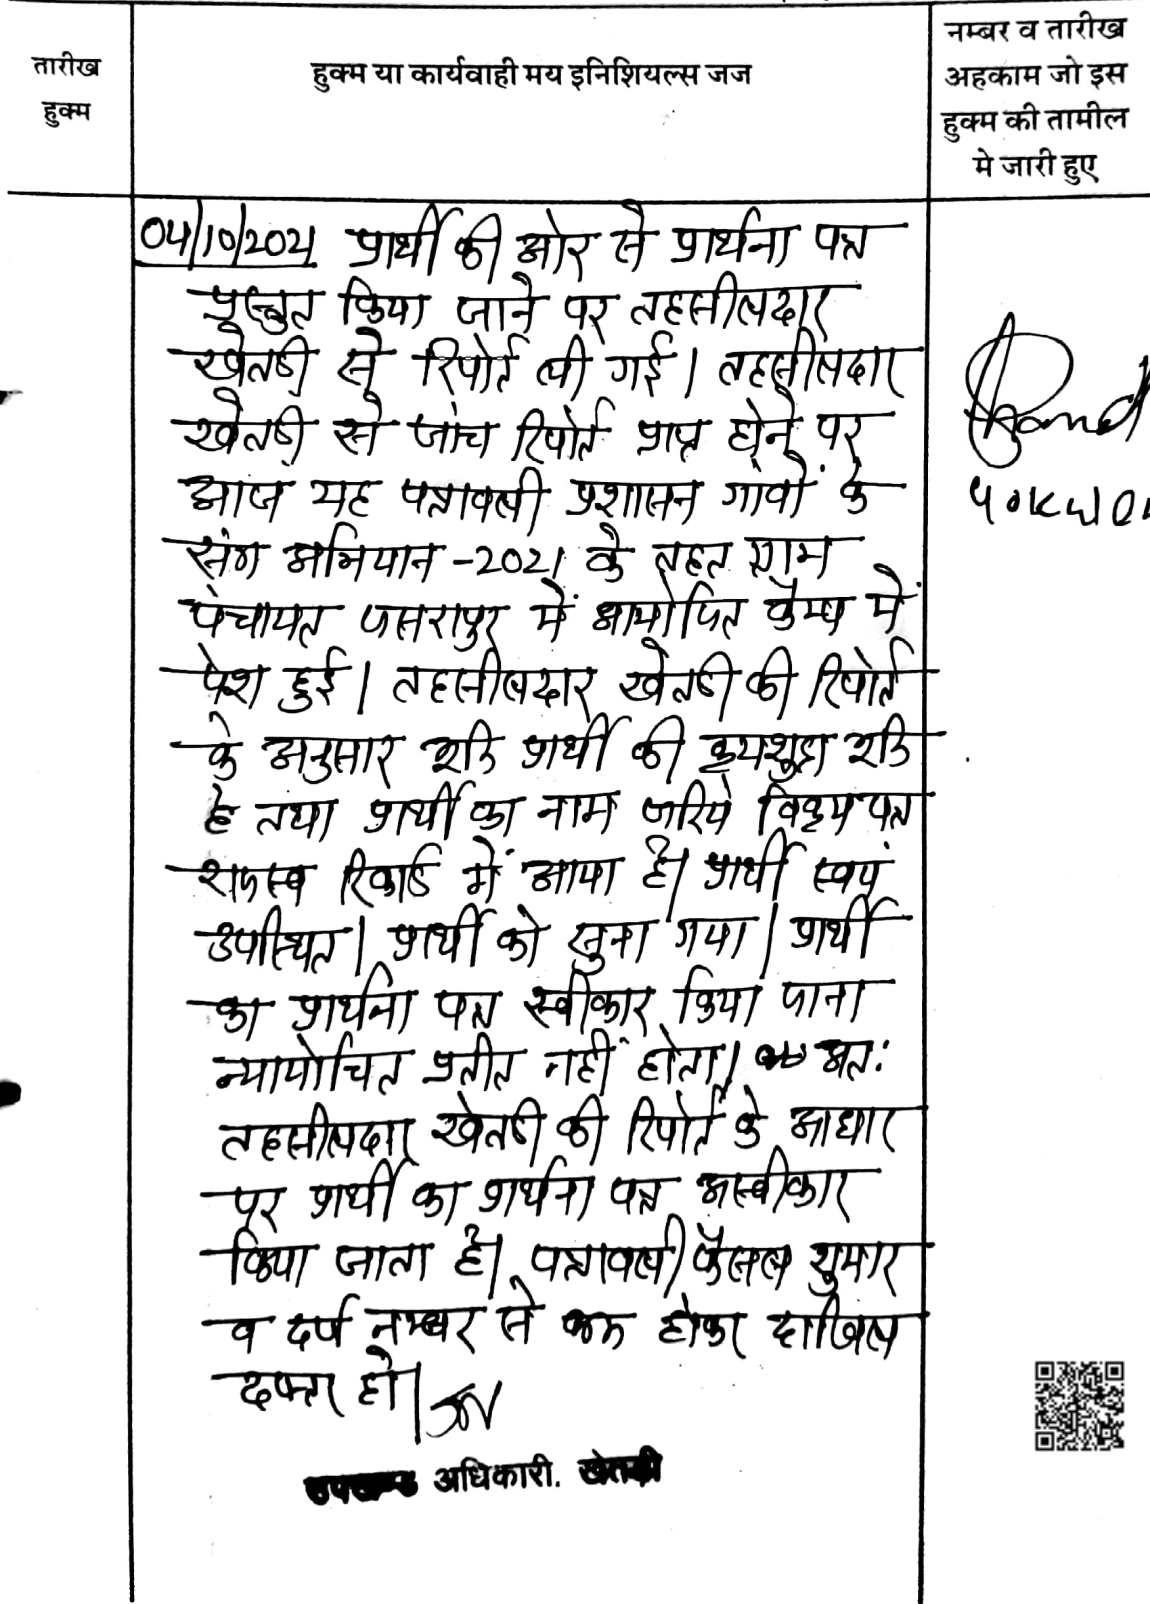 तारीख
हुक्म
हुक्म या कार्यवाही मय इनिशियल्स जज
नम्बर व तारीख
अहकाम जो इस
हुक्म की तामील
मे जारी हुए
04/10/2021 प्रार्थी की ओर से प्रार्थना पत्र
प्रस्तुत किया जाने पर तहसीलदार
खेतडी से रिपोर्ट ली गई। तहसीलदार
खेतडी से जांच रिपोर्ट प्राप्त होने पर
आज यह पत्रावली प्रशासन गांवों के
संग अभियान -2021 के तहत ग्राम
पंचायत जसरापुर में आयोजित कैम्प में
पेश हुई। तहसीलदार खेतडी की रिपोर्ट
के अनुसार प्रार्थी की क्रयशुदा
है तथा प्रार्थी का नाम जरिये विक्रय पत्र
राजस्व रिकार्ड में आया है। प्रार्थी स्वयं
उपस्थित। प्रार्थी को सुना गया। प्रार्थी
का प्रार्थना पत्र स्वीकार किया जाना
न्यायोचित प्रतीत नहीं होता। अतः
तहसीलदार खेतडी की रिपोर्ट के आधार
पर प्रार्थी का प्रार्थना पत्र अस्वीकार
किया जाता है। पत्रावली फैसल शुमार
व दर्ज नम्बर से कम होकर दाखिल
दफ्तर हो।
उपखण्ड अधिकारी. खेतडी